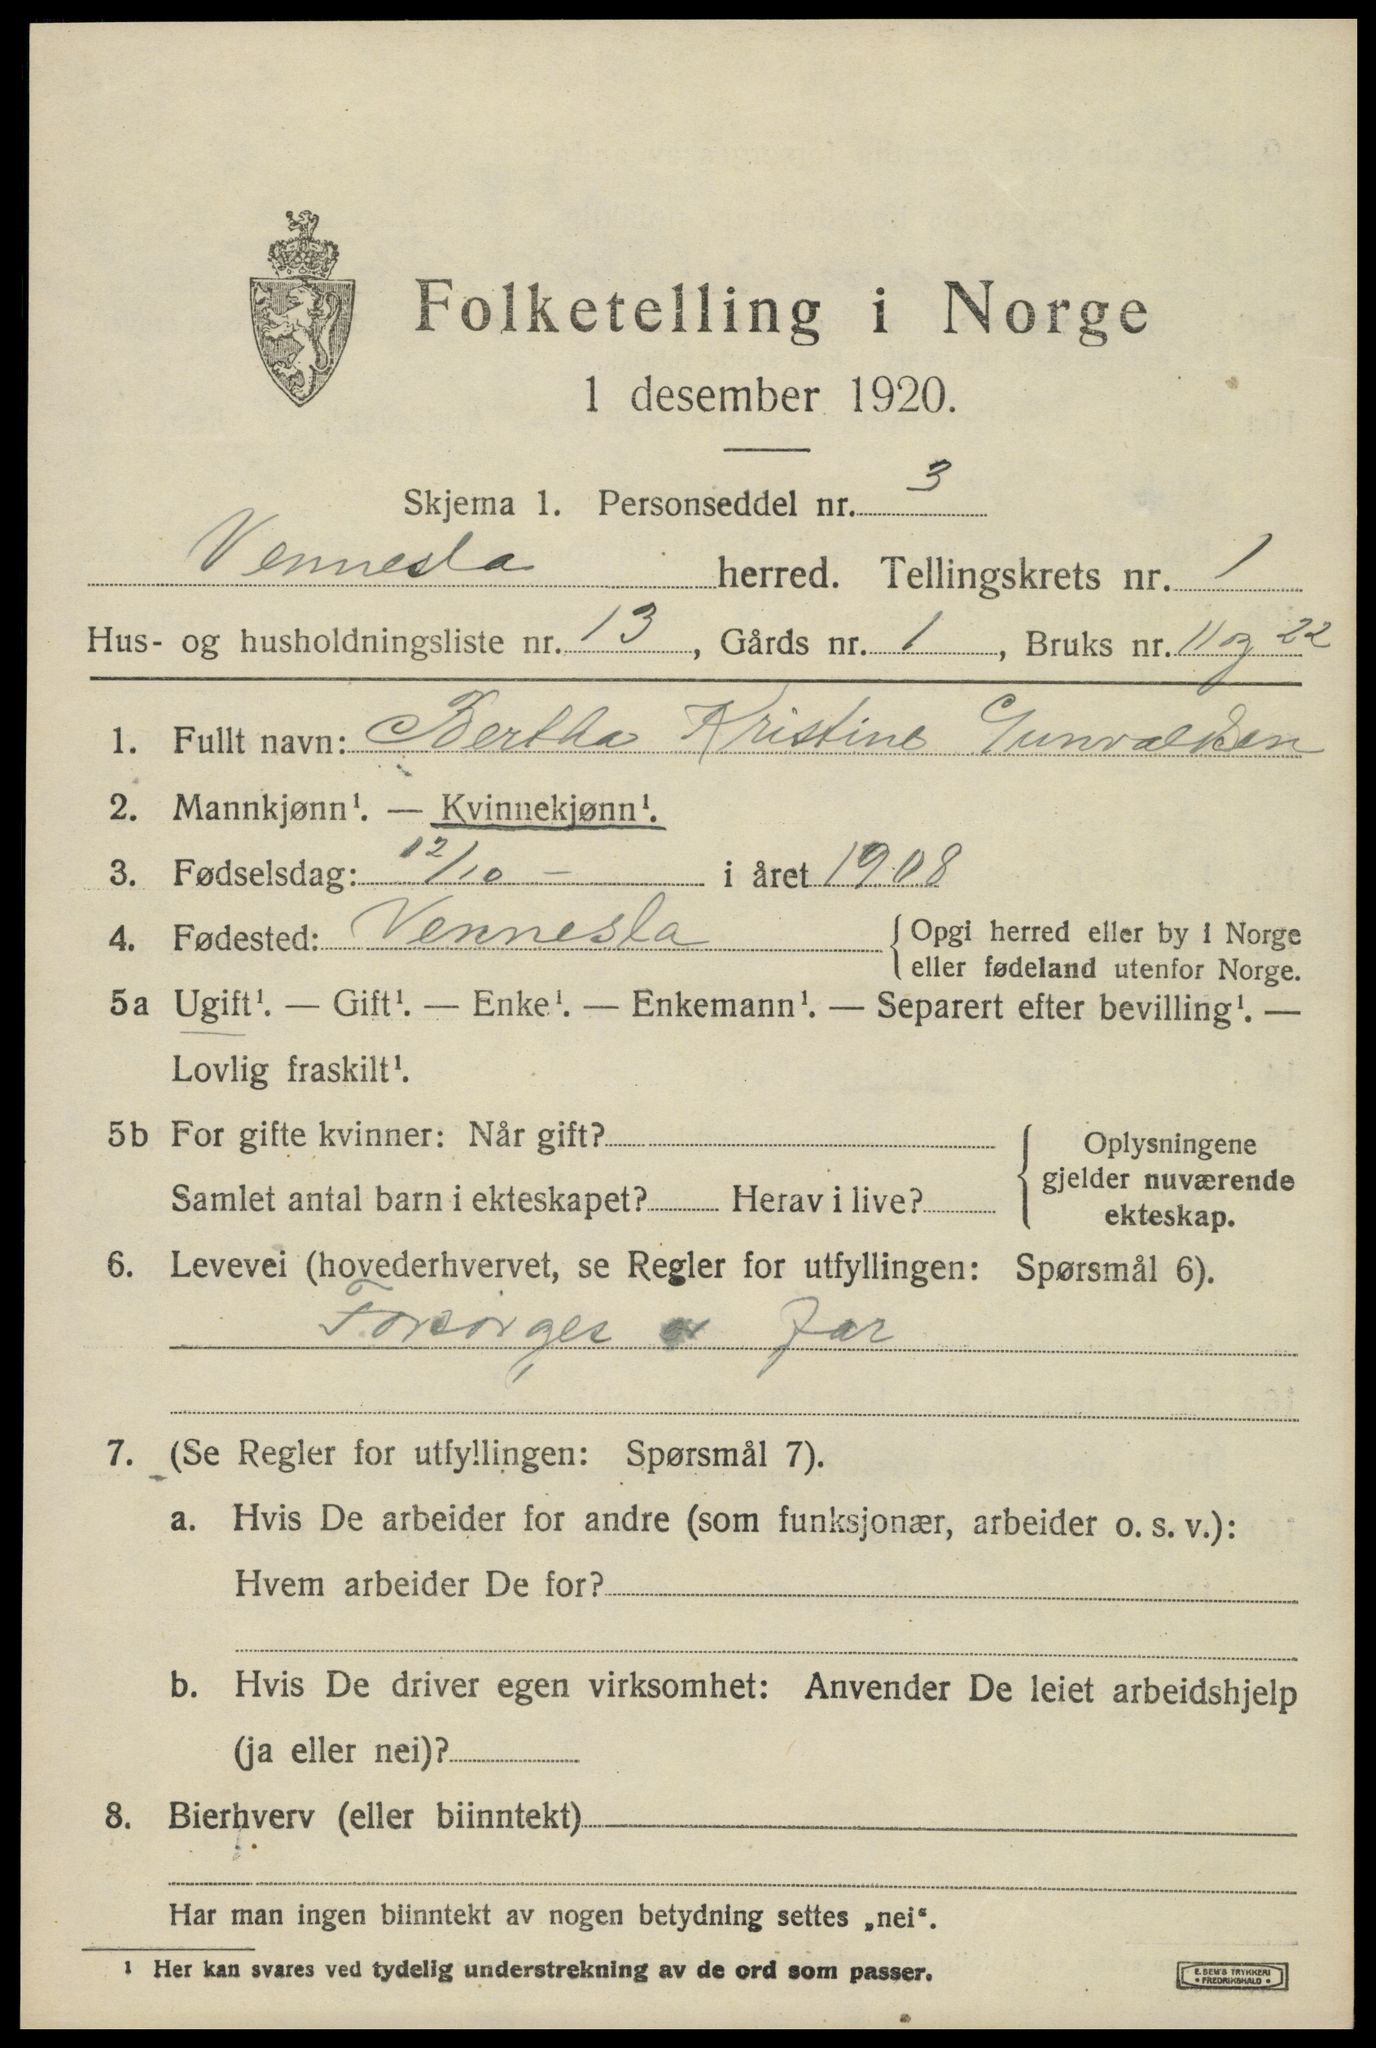 Folketelling i Norge
1 desember 1920.
Skjema 1. Personseddel nr. 3
Vennesla herred. Tellingskrets nr. 1
Hus- og husholdningsliste nr. 13, Gårds nr. 1, Bruks nr. 11 og 22
1. Fullt navn: Bertha Kristine Gunvaldsen
2. Mannkjønn¹. — Kvinnekjønn¹.
3. Fødselsdag: 12/10 – i året 1908
4. Fødested: Vennesla { Opgi herred eller by i Norge
eller fødeland utenfor Norge.
5a Ugift¹. — Gift¹. — Enke¹. — Enkemann¹. — Separert efter bevilling¹. —
Lovlig fraskilt¹.
5b For gifte kvinner: Når gift? { Oplysningene
gjelder nuværende
Samlet antal barn i ekteskapet? Herav i live?
ekteskap.
6. Levevei (hovederhvervet, se Regler for utfyllingen: Spørsmål 6).
Forsørges far
7. (Se Regler for utfyllingen: Spørsmål 7).
a. Hvis De arbeider for andre (som funksjonær, arbeider o. s. v.):
Hvem arbeider De for?
b. Hvis De driver egen virksomhet: Anvender De leiet arbeidshjelp
(ja eller nei)?
8. Bierhverv (eller biinntekt)
Har man ingen biinntekt av nogen betydning settes „nei“.
¹ Her kan svares ved tydelig understrekning av de ord som passer.
E. SEM'S TRYKKERI
• FREDRIKSHALD •